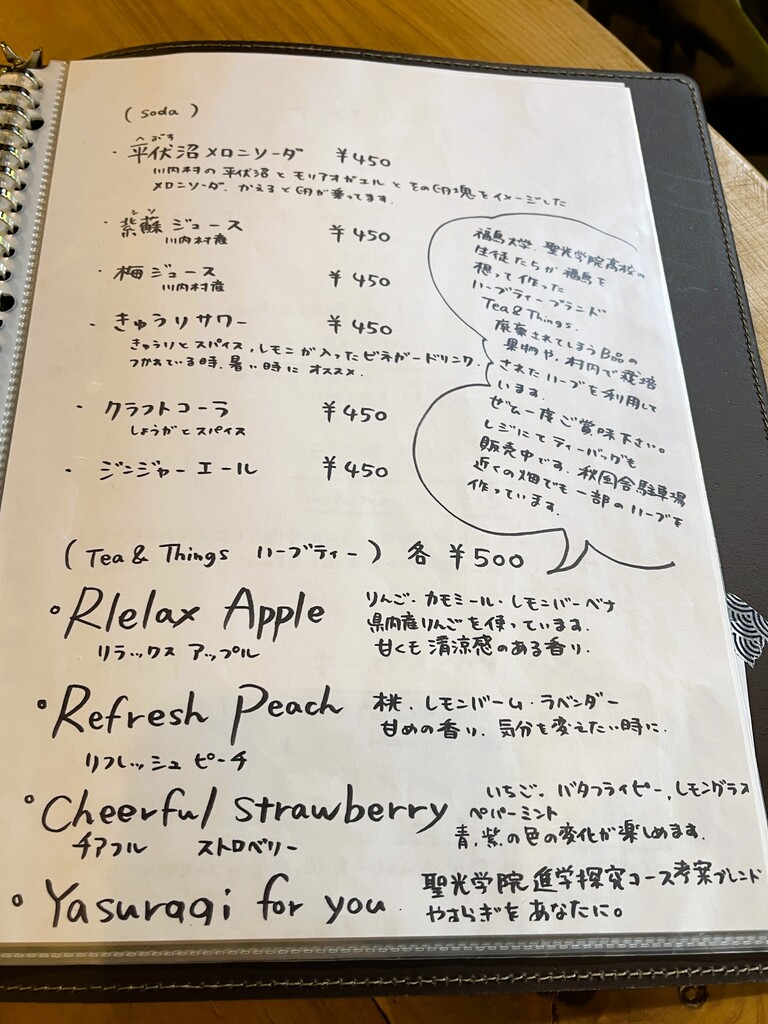 (soda)
へぶす
・平伏沼メロンソーダ ¥450
川内村の平伏沼とモリアオガエルとその卵塊をイメージした
メロンソーダ。かえると卵が乗ってます。
シソ
・紫蘇ジュース ¥450
川内村産
・梅ジュース ¥450
川内村産
・きゅうりサワー ¥450
きゅうりとスパイス,レモンが入ったビネガードリンク。
つかれている時、暑い時にオススメ。
・クラフトコーラ ¥450
しょうがとスパイス
・ジンジャーエール ¥450
福島大学、聖光学院高校の
生徒たちが福島を
想って作った
ハーブティーブランド
Tea&Things.
廃棄されてしまうB品の
果物や、村内で栽培
されたハーブを利用して
います。
ぜひ一度ご賞味下さい。
レジにてティーバッグも
販売中です。秋風舎駐車場
近くの畑でも一部のハーブを
作っています。
(Tea& Things ハーブティー) 各 ¥500
・Rlelax Apple
リラックス アップル
りんご・カモミール・レモンバーベナ
県内産りんごを使っています。
甘くも清涼感のある香り。
・Refresh Peach
リフレッシュ ピーチ
桃・レモンバーム・ラベンダー
甘めの香り、気分を変えたい時に。
・Cheerful strawberry
チアフル ストロベリー
いちご、バタフライピー,レモングラス
ペパーミント
青,紫の色の変化が楽しめます。
・Yasuragi for you
聖光学院 進学探究コース考案ブレンド
やすらぎをあなたに。